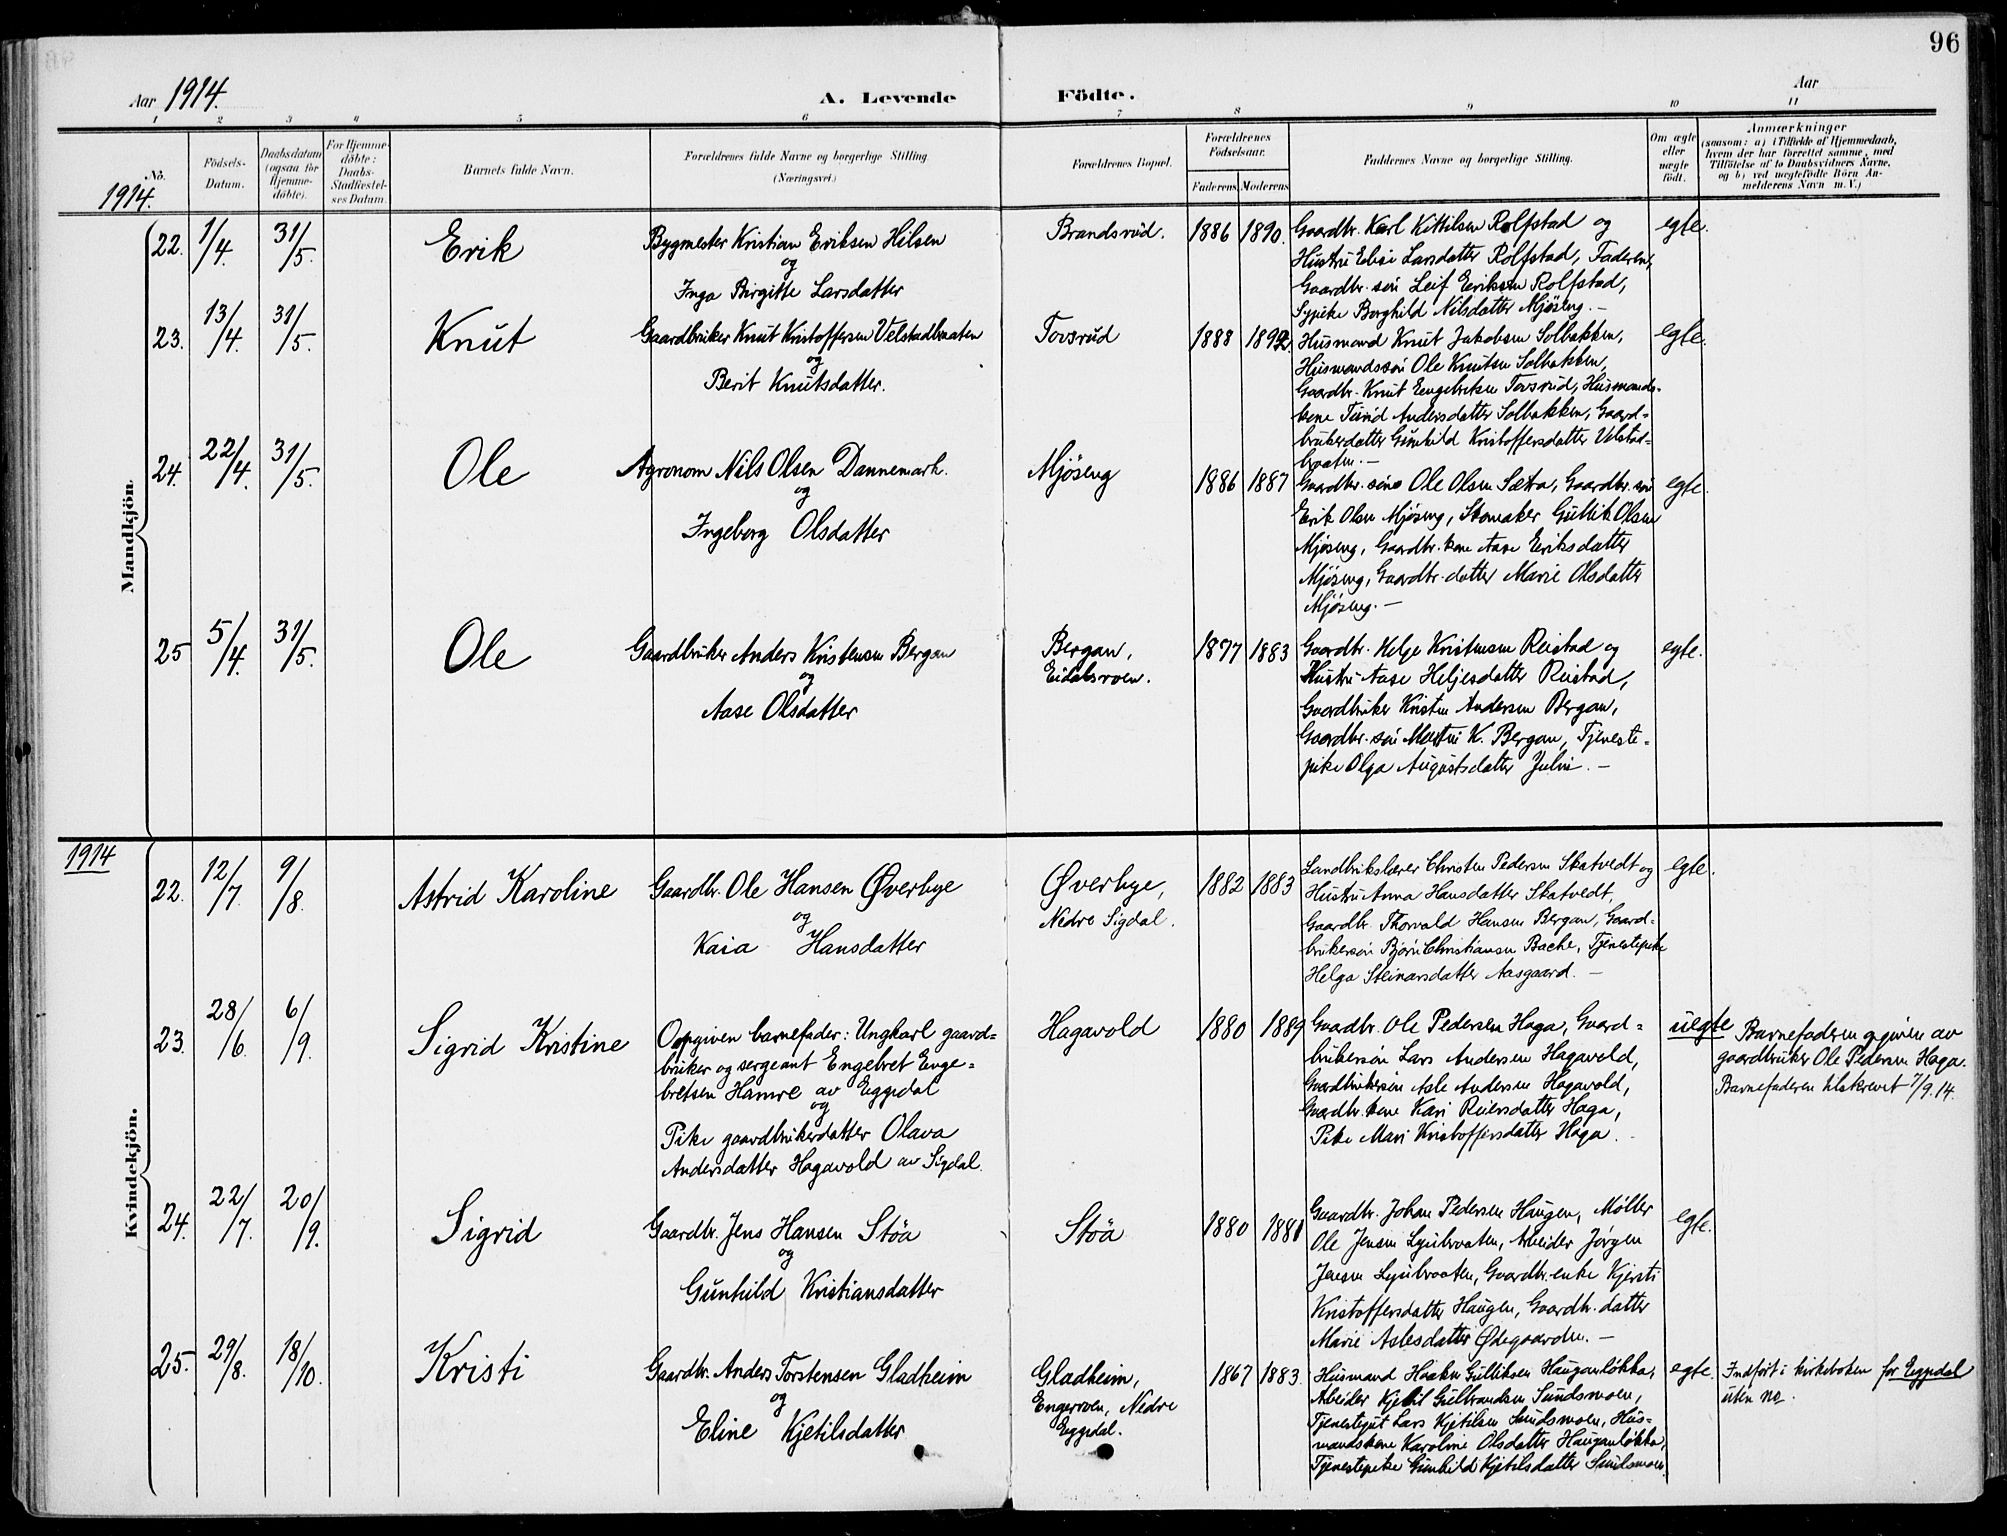 96
Aar 1914.
A. Levende Födte.
Aar
1 2 3 4 5 6 7 8 9 10 11
No.
1914.
Födsels-Datum.
Daabsdatum (ogsaa for Hjemme-döbte).
For Hjemme-döbte: Daabs-Stadfæstel-ses Datum.
Barnets fulde Navn.
Forældrenes fulde Navne og borgerlige Stilling (Næringsvei.)
Forældrenes Bopæl.
Forældrenes Födselsaar.
Faderens Moderens
Faddernes Navne og borgerlige Stilling.
Om ægte eller uægte födt.
Anmærkninger
(saasom: a) i Tilfælde af Hjemmedaab,
hvem der har forrettet samme, med
Tilföielse af to Daabsvidners Navne,
og b) ved uægtefödte Börn An-
melderens Navn m. V.)
Mandkjön.
22. 1/4. 31/5. Erik
Bygmester Kristian Eriksen Hilsen
og
Inga Birgitte Larsdatter
Brandsrud. 1886 1890.
Gaardbr. Karl Kittilsen Rolfstad og
Hustru Elise Larsdatter Rolfstad, Faderen,
Gaardbr. søn Leif Eriksen Rolfstad,
Sypike Borghild Nilsdatter Mjøseng. –
egte.
23. 13/4. 31/5. Knut
Gaardbruker Knut Kristoffersen Velstadbraaten
og
Berit Knutsdatter.
Tovsrud 1888 1892.
Husmand Knut Jakobsen Solbakken,
Husmandssøn Ole Knutsen Solbakken,
Gaardbr. Knut Engebretsen Tovsrud, Husmands-
kone Turid Andersdatter Solbakken, Gaard-
brukerdatter Gunhild Kristoffersdatter Velstad-
braaten. –
egte.
24. 22/4. 31/5. Ole
Agronom Nils Olsen Dannemark.
og
Ingeborg Olsdatter
Mjöseng 1886 1887
Gaardbr. søn Ole Olsen Sætra, Gaardbr. søn
Erik Olsen Mjøseng, Skomaker Gullik Olsen
Mjøseng, Gaardbr. kone Aase Eriksdatter
Mjøseng, Gaardbr. datter Marie Olsdatter
Mjøseng. –
egte.
25 5/4. 31/5. Ole
Gaardbruker Anders Kristensen Bergan
og
Aase Olsdatter
Bergan,
Eidalsroen.
1877 1883
Gaardbr. Helge Kristensen Reistad og
Hustru Aase Heljesdatter Reistad,
Gaardbruker Kristen Andersen Bergan,
Gaardbr. søn K. Bergan, Tjeneste-
pike Olga Augustsdatter Julin. –
egte.
1914
Kvindekjön.
22. 12/7. 9/8. Astrid Karoline
Gaardbr. Ole Hansen Øverbye
og
Kaia Hansdatter
Øverbye,
Nedre Sigdal.
1882 1883
Landbrukslærer Christen Pedersen Skatvedt og
Hustru Anna Hansdatter Skatvedt,
Gaardbr. Thorvald Hansen Bergan, Gaard-
brukersøn Bjørn Christiansen Bache, Tjenestepike
Helga Steinarsdatter Aasgaard. –
egte.
23. 28/6. 6/9. Sigrid Kristine
Opgiven barnefader: Ungkarl gaard-
bruker og sergeant Engebret Enge-
bretsen Hamre av Eggedal
og
Pike gaardbrukerdatter Olava
Andersdatter Hagavold av Sigdal.
Hagavold 1880 1889
Gaardbr. Ole Pedersen Haga, Gaard-
brukersøn Lars Andersen Hagavold,
Gaardbrukersøn Asle Andersen Hagavold,
Gaardbr. kone Kari Reiersdatter Haga,
Pike Mari Kristoffersdatter Haga.
uegte
Barnefaderen opgiven av
gaardbruker Ole Pedersen Haga.
Barnefaderen tilskrevet 7/9.14.
24. 22/7. 20/9. Sigrid
Gaardbr. Jens Hansen Stöa
og
Gunhild Kristiansdatter
Stöa 1880 1881
Gaardbr. Johan Pedersen Haugen, Møller
Ole Jensen, Arbeider Jørgen
Jensen, Gaardbr. enke Kjersti
Kristoffersdatter Haugen, Gaardbr. datter
Marie Aslesdatter Ødegaarden. –
egte.
25. 29/8. 18/10. Kristi
Gaardbr. Anders Torstensen Gladheim
og
Eline Kjetilsdatter
Gladheim,
Engerroen, Nedre
Eggedal.
1867 1883.
Husmand Haaken Gulliksen Hauganløkka,
Arbeider Kjetil Gulbrandsen Sundsmoen,
Tjenestegut Lars Kjetilsen Sundsmoen, Hus-
mandskone Karoline Olsdatter Hauganløkka,
Tjenestepike Gunhild Kjetilsdatter Sundsmoen.
egte.
Indført i kirkeboken for Eggedal
uten no.